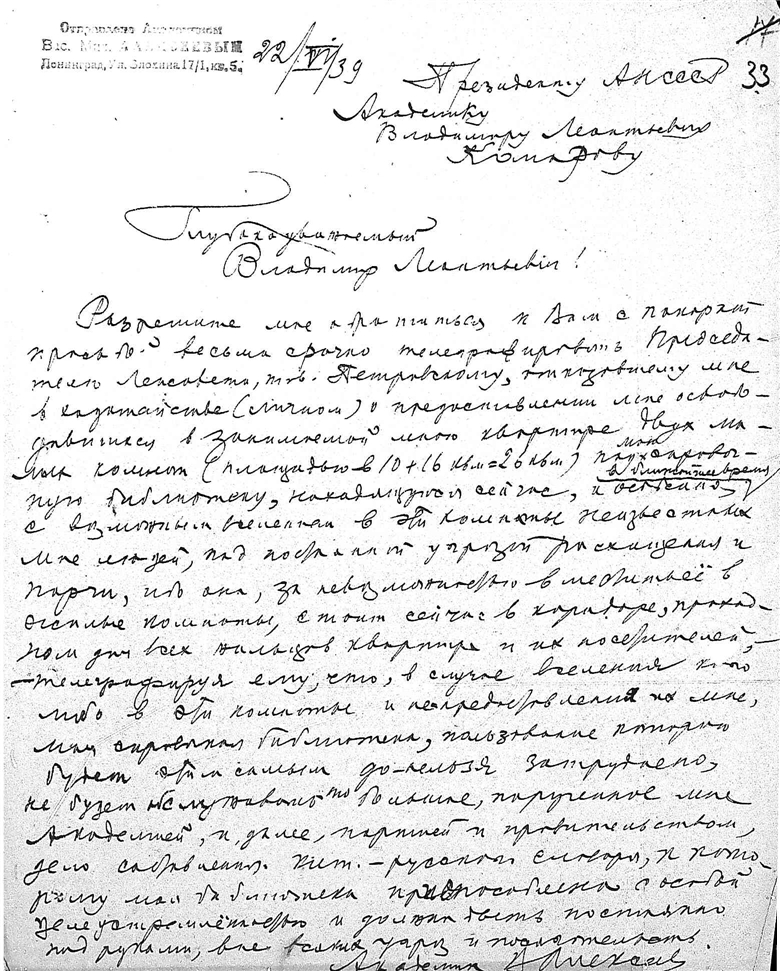 Отправлено Академиком
Вас. Мих. АЛЕКСЕЕВЫМ
Ленинград, Ул. Блохина 17/1, кв. 5.
22/VI/39
17
33
Президенту АНСССР
Академику
Владимиру Леонтьевичу
Комарову
Глубокоуважаемый
Владимир Леонтьевич!
Разрешите мне обратиться к Вам с покорной
просьбой весьма срочно телеграфировать Председа-
телю Ленсовета, тов. Петровскому, отказавшему мне
в ходатайстве (личном) о предоставлении мне освобо-
дившихся в занимаемой мною квартире двух ма-
лых комнат (площадью в 10+16 квм=26 квм) под мою справоч-
ную библиотеку, находящуюся сейчас, и особенно в ближайшее время,
с возможным вселением в эти комнаты неизвестных
мне людей, под постоянной угрозой расхищения и
порчи, ибо она, за невозможностью вместить её в
жилые комнаты, стоит сейчас в коридоре, проход-
ном для всех жильцов квартиры и их посетителей,
– телеграфируя ему, что, в случае вселения кого
либо в эти комнаты и непредоставления их мне,
моя справочная библиотека, пользование которою
будет этим самым до-нельзя затруднено,
не будет обслуживать то большое, порученное мне
Академией, и, далее, партией и правительством,
дело составления кит.-русского словаря, к кото-
рому моя библиотека приспособлена с особой
целеустремлённостью и должна быть постоянно
под руками, вне всяких угроз и посягательств.
Академик В Алексеев